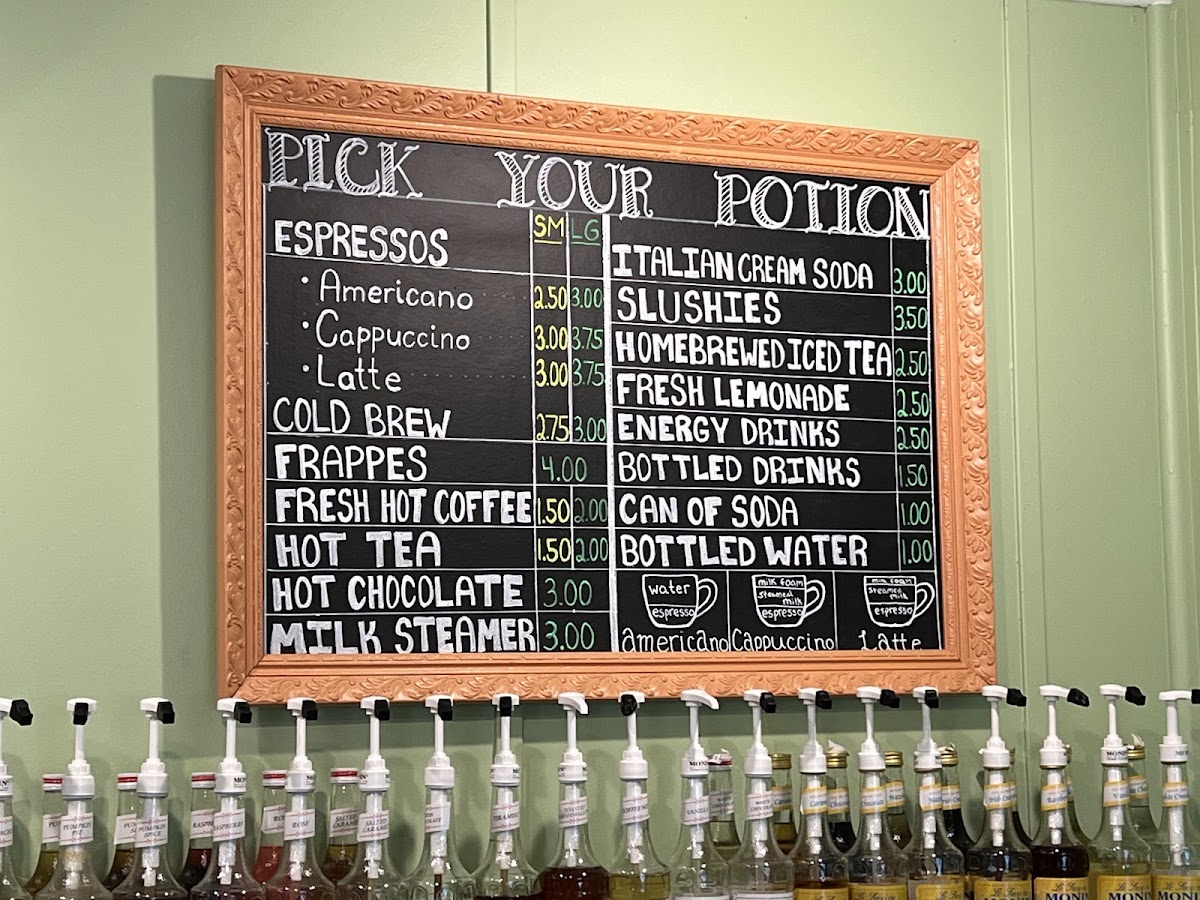 PICK YOUR POTION
SM LG
ESPRESSOS
• Americano 2.50 3.00
• Cappuccino 3.00 3.75
• Latte 3.00 3.75
COLD BREW 2.75 3.00
FRAPPES 4.00
FRESH HOT COFFEE 1.50 2.00
HOT TEA 1.50 2.00
HOT CHOCOLATE 3.00
MILK STEAMER 3.00
ITALIAN CREAM SODA 3.00
SLUSHIES 3.50
HOMEBREWED ICED TEA 2.50
FRESH LEMONADE 2.50
ENERGY DRINKS 2.50
BOTTLED DRINKS 1.50
CAN OF SODA 1.00
BOTTLED WATER 1.00
water
espresso
americano
milk foam
steamed
milk
espresso
Cappuccino
milk foam
steamed
milk
espresso
Latte
PUMPKIN
PUMPKIN
SPICE
RASPBERRY
ROSE
SALTED
CARAMEL
VANILLA
MONIN
MONIN